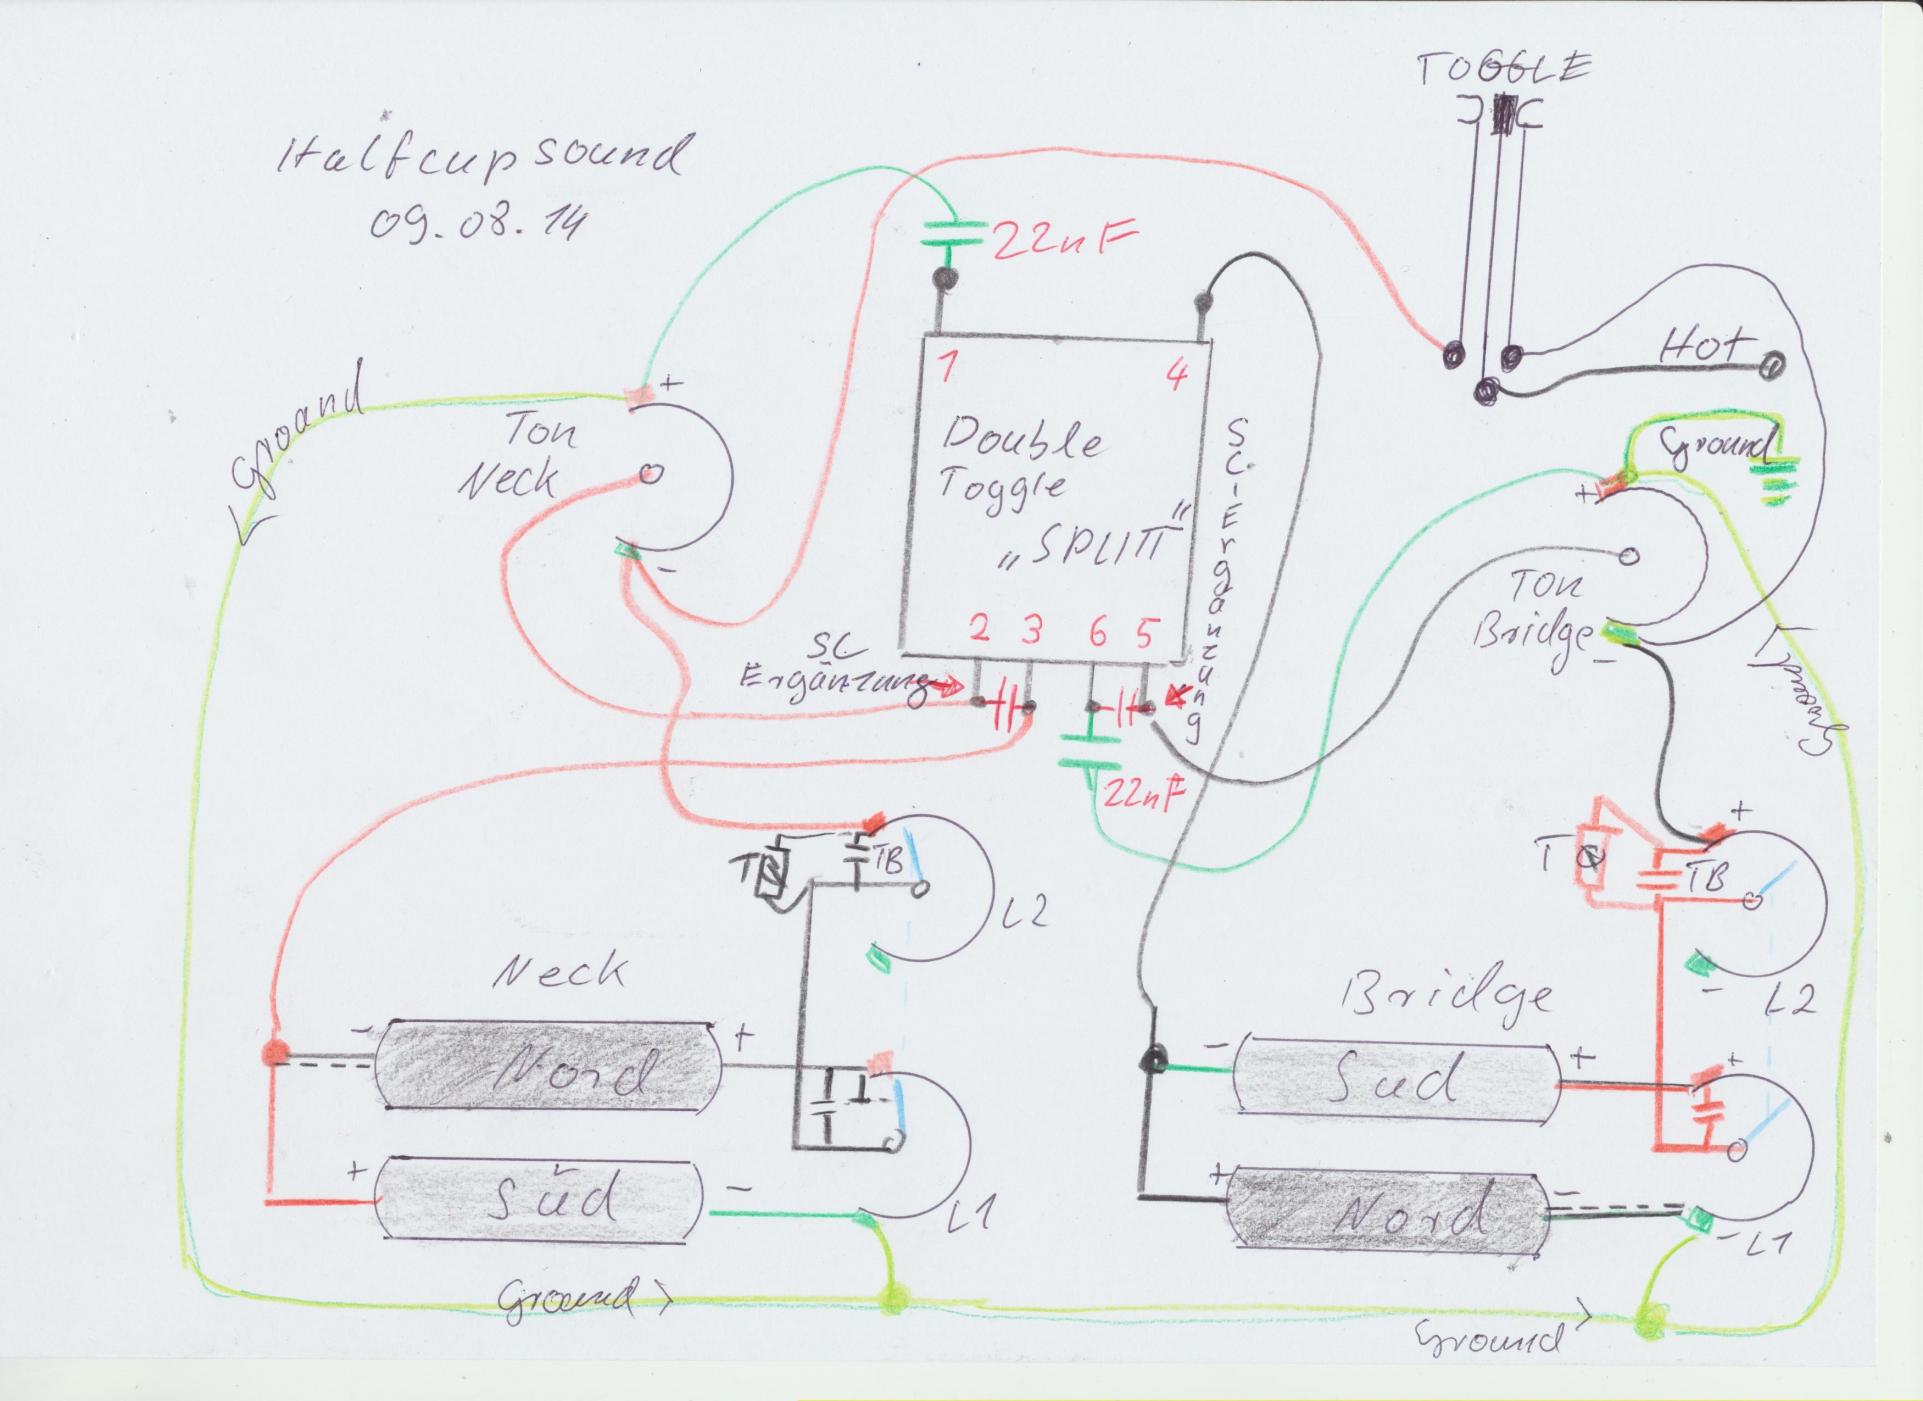 TOGGLE
Halfcupsound
09.08.14
22nF
Hot
Ground
+
Ton
Neck
-
Ground
1
4
Double
Toggle
„SPLIT"
2 3 6 5
SC-Ergänzung
SC
Ergänzung
22nF
+
Ton
Bridge
-
Ground
T
TB
L2
+
T
TB
-
L2
Neck
- Nord +
+ Süd -
L1
Bridge
- Süd +
+
+ Nord -
- L1
Ground >
Ground >